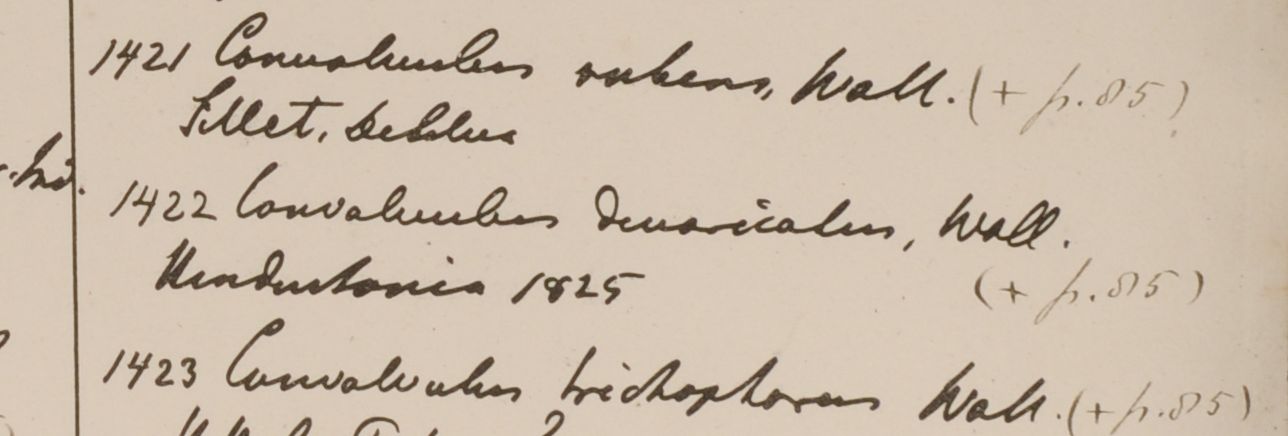 1421 Convolvulus rubens, Wall. (+ p. 85)
Sillet,
1422 Convolvulus divaricatus, Wall.
Hindustania 1825 (+ p. 85)
1423 Convolvulus trichophorus Wall. (+ p. 85)